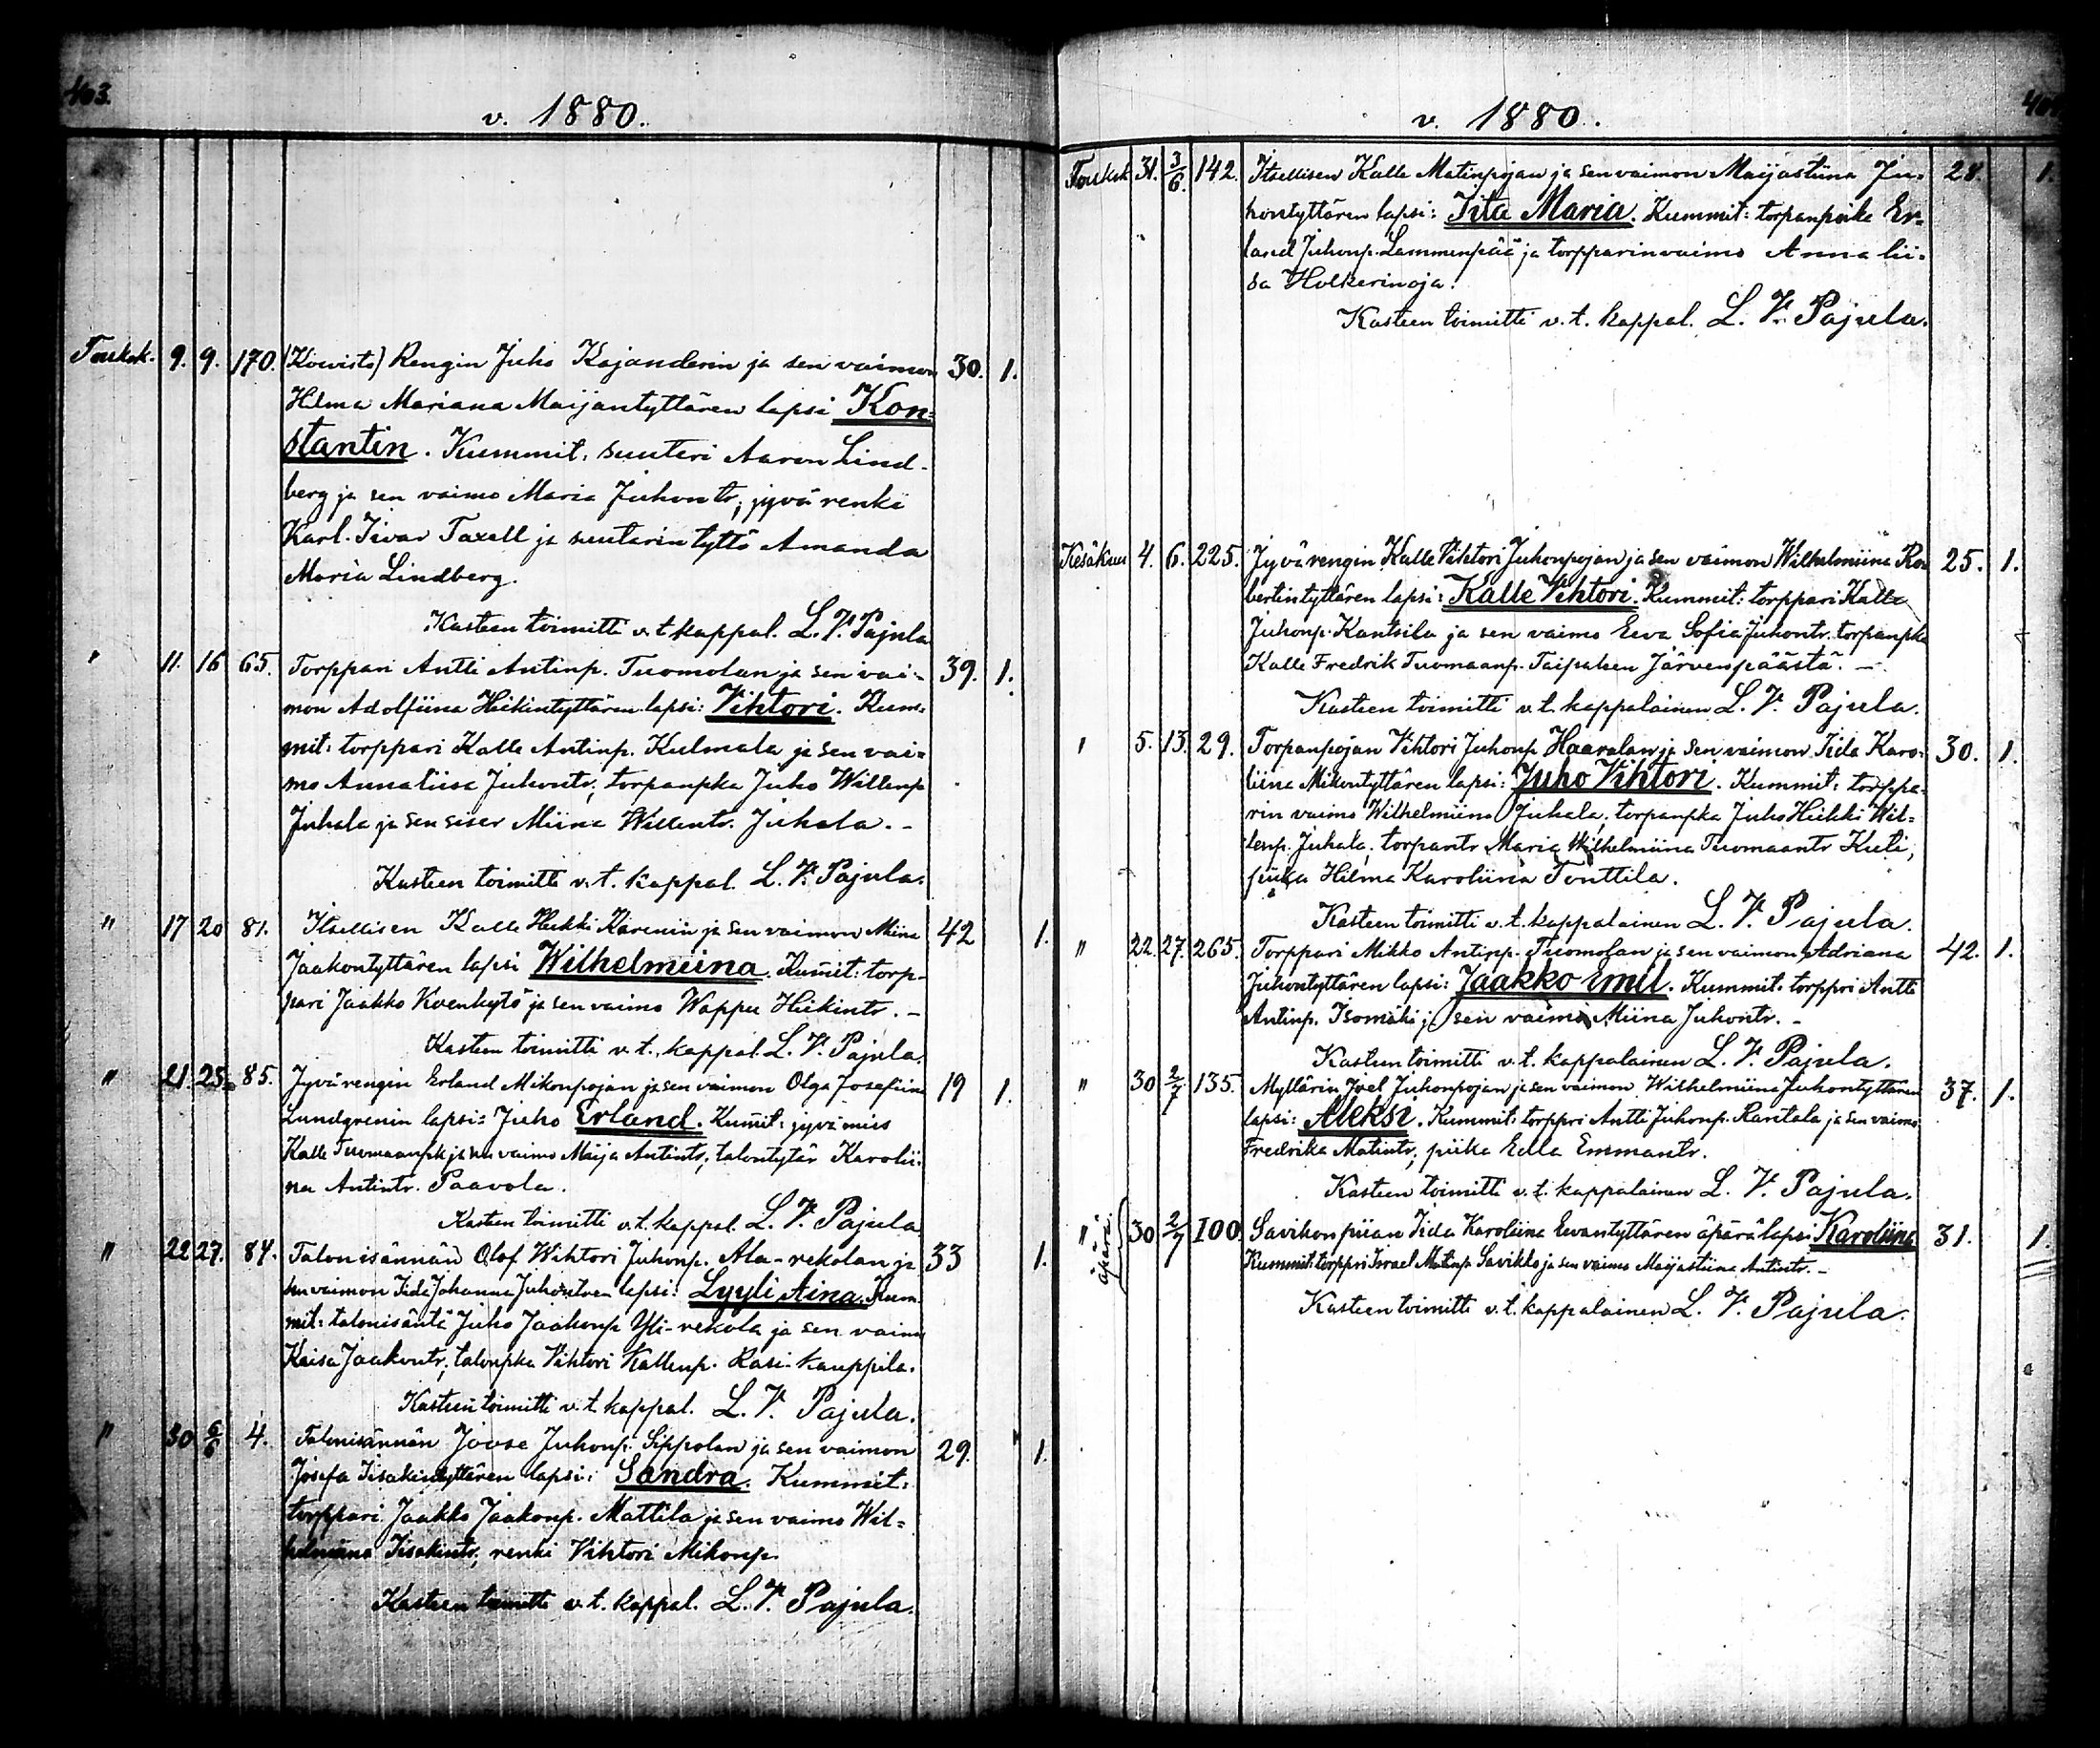 403.
v. 1880.
Toukok. 9. 9. 170. (Koivisto) Rengin Juho Kajanderin ja sen vaimon 30. 1.
Hilma Mariana Maijantyttären lapsi Kon-
stantin. Kummit: suutari Aaron Lind-
berg ja sen vaimo Maria Juhontr, jyvärenki
Karl Iivar Taxell ja suutarin tyttö Amanda
Maria Lindberg.
Kasteen toimitti v. t. kappal. L. V. Pajula
" 11. 16 65. Torppari Antti Antinp. Tuomolan ja sen vai- 39. 1.
mon Adolfiina Heikintyttären lapsi: Vihtori. Kum-
mit: torppari Kalle Antinp. Kulmala ja sen vai-
mo Annaliisa Juhontr, torpanpka Juho Willenp
Juhala ja sen siser Miina Willentr. Juhala. -
Kasteen toimitti v. t. kappal. L. V. Pajula.
" 17 20 81. Itsellisen Kalle Heikki Karenin ja sen vaimon Miina 42 1.
Jaakontyttären lapsi Wilhelmiina. Kum̄it: torp-
pari Jaakko Koenkytö ja sen vaimo Wappu Heikintr. -
Kasteen toimitti v. t. kappal. L. V. Pajula.
" 21. 25. 85. Jyvärengin Erland Mikonpojan ja sen vaimon Olga Josefiina 19 1.
Lundgrenin lapsi: Juho Erland. Kum̄it: jyvämies
Kalle Tuomaanpk ja sen vaimo Maija Antintr, talontytär Karolii-
na Antintr. Paavola.
Kasteen toimitti v. t. kappal. L. V. Pajula
" 22 27. 84. Talonisännän Olof Wihtori Juhonp. Ala-rekolan ja 33 1.
sen vaimon Iida Johanna Juhontren lapsi: Lyyli Aina. Kum-
mit: talonisäntä Juho Jaakonp Yli-rekola ja sen vaimo
Kaisa Jaakontr, talonpka Vihtori Kallenp. Rasi-kauppila.
Kasteen toimitti v. t. kappal. L. V. Pajula.
" 30 6/6 4. Talonisännän Joose Juhonp. Sippolan ja sen vaimon 29. 1.
Josefa Iisakintyttären lapsi: Sandra. Kummit:
torppari Jaakko Jaakonp. Mattila ja sen vaimo Wil-
helmiina Iisakintr, renki Vihtori Mikonp.
Kasteen toimitti v. t. kappal. L. V. Pajula.
v. 1880.
Toukok 31. 3/6. 142. Itsellisen Kalle Matinpojan ja sen vaimon Maijastiina Ju- 28. 1.
hontyttären lapsi: Iita Maria. Kummit: torpanpoika Er-
land Juhonp. Lammenpää ja torpparinvaimo Anna lii-
sa Holkerinoja.
Kasteen toimitti v. t. kappal. L. V. Pajula.
Kesäkuu 4. 6. 225. Jyvärengin Kalle Vihtori Juhonpojan ja sen vaimon Wilhelmiina Ro- 25. 1.
bertintyttären lapsi: Kalle Vihtori. Kummit: torppari Kalle
Juhonp. Kantsila ja sen vaimo Eeva Sofia Juhontr. torpanpka
Kalle Fredrik Tuomaanp. Taipaleen Järvenpäästä. -
Kasteen toimitti v. t. kappalainen L. V. Pajula.
" 5. 13. 29. Torpanpojan Vihtori Juhonp Haaralan ja sen vaimon Iida Karo- 30. 1.
liina Mikontyttären lapsi: Juho Vihtori. Kummit: torppa-
rin vaimo Wilhelmiina Juhala, torpanpka Juho Heikki Wil-
lenp. Juhala, torpantr Maria Wilhelmiina Tuomaantr Kuti,
piika Hilma Karoliina Tonttila.
Kasteen toimitti v. t. kappalainen L. V. Pajula.
" 22. 27. 265. Torppari Mikko Antinp. Tuomolan ja sen vaimon Adriana 42. 1.
Juhontyttären lapsi: Jaakko Emil. Kummit: torppri Antti
Antinp. Isomäki ja sen vaimo Miina Juhontr. -
Kasteen toimitti v. t. kappalainen L. V. Pajula.
" 30 2/7 135. Myllärin Joel Juhonpojan ja sen vaimon Wilhelmiina Juhontyttären 37. 1.
lapsi: Aleksi. Kummit: torppri Antti Juhonp. Rantala ja sen vaimo
Fredrika Matintr, piika Edla Emmantr.
Kasteen toimitti v. t. kappalainen L. V. Pajula.
äpärä. " 30 2/7 100 Savikon piian Iida Karoliina Eevantyttären äpärä lapsi Karoliina 31. 1.
Kummit: torppri Israel Matinp Savikko ja sen vaimo Maijastiina Antintr. -
Kasteen toimitti v. t. kappalainen L. V. Pajula.